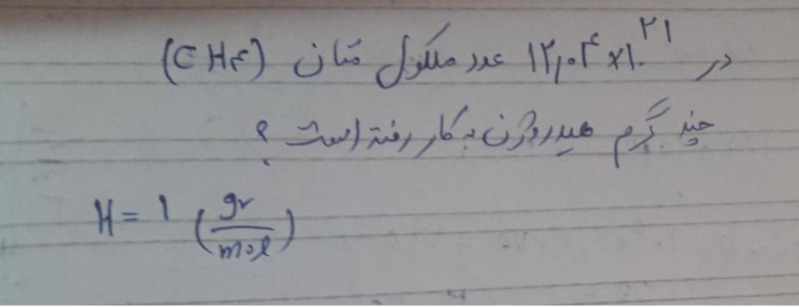 در ۱۲٫۰۴×۱۰^۲۱ عدد ملکول متان (CH۴)
چند گرم هیدروژن به کار رفته است ؟
H = ۱ (gr/mol)